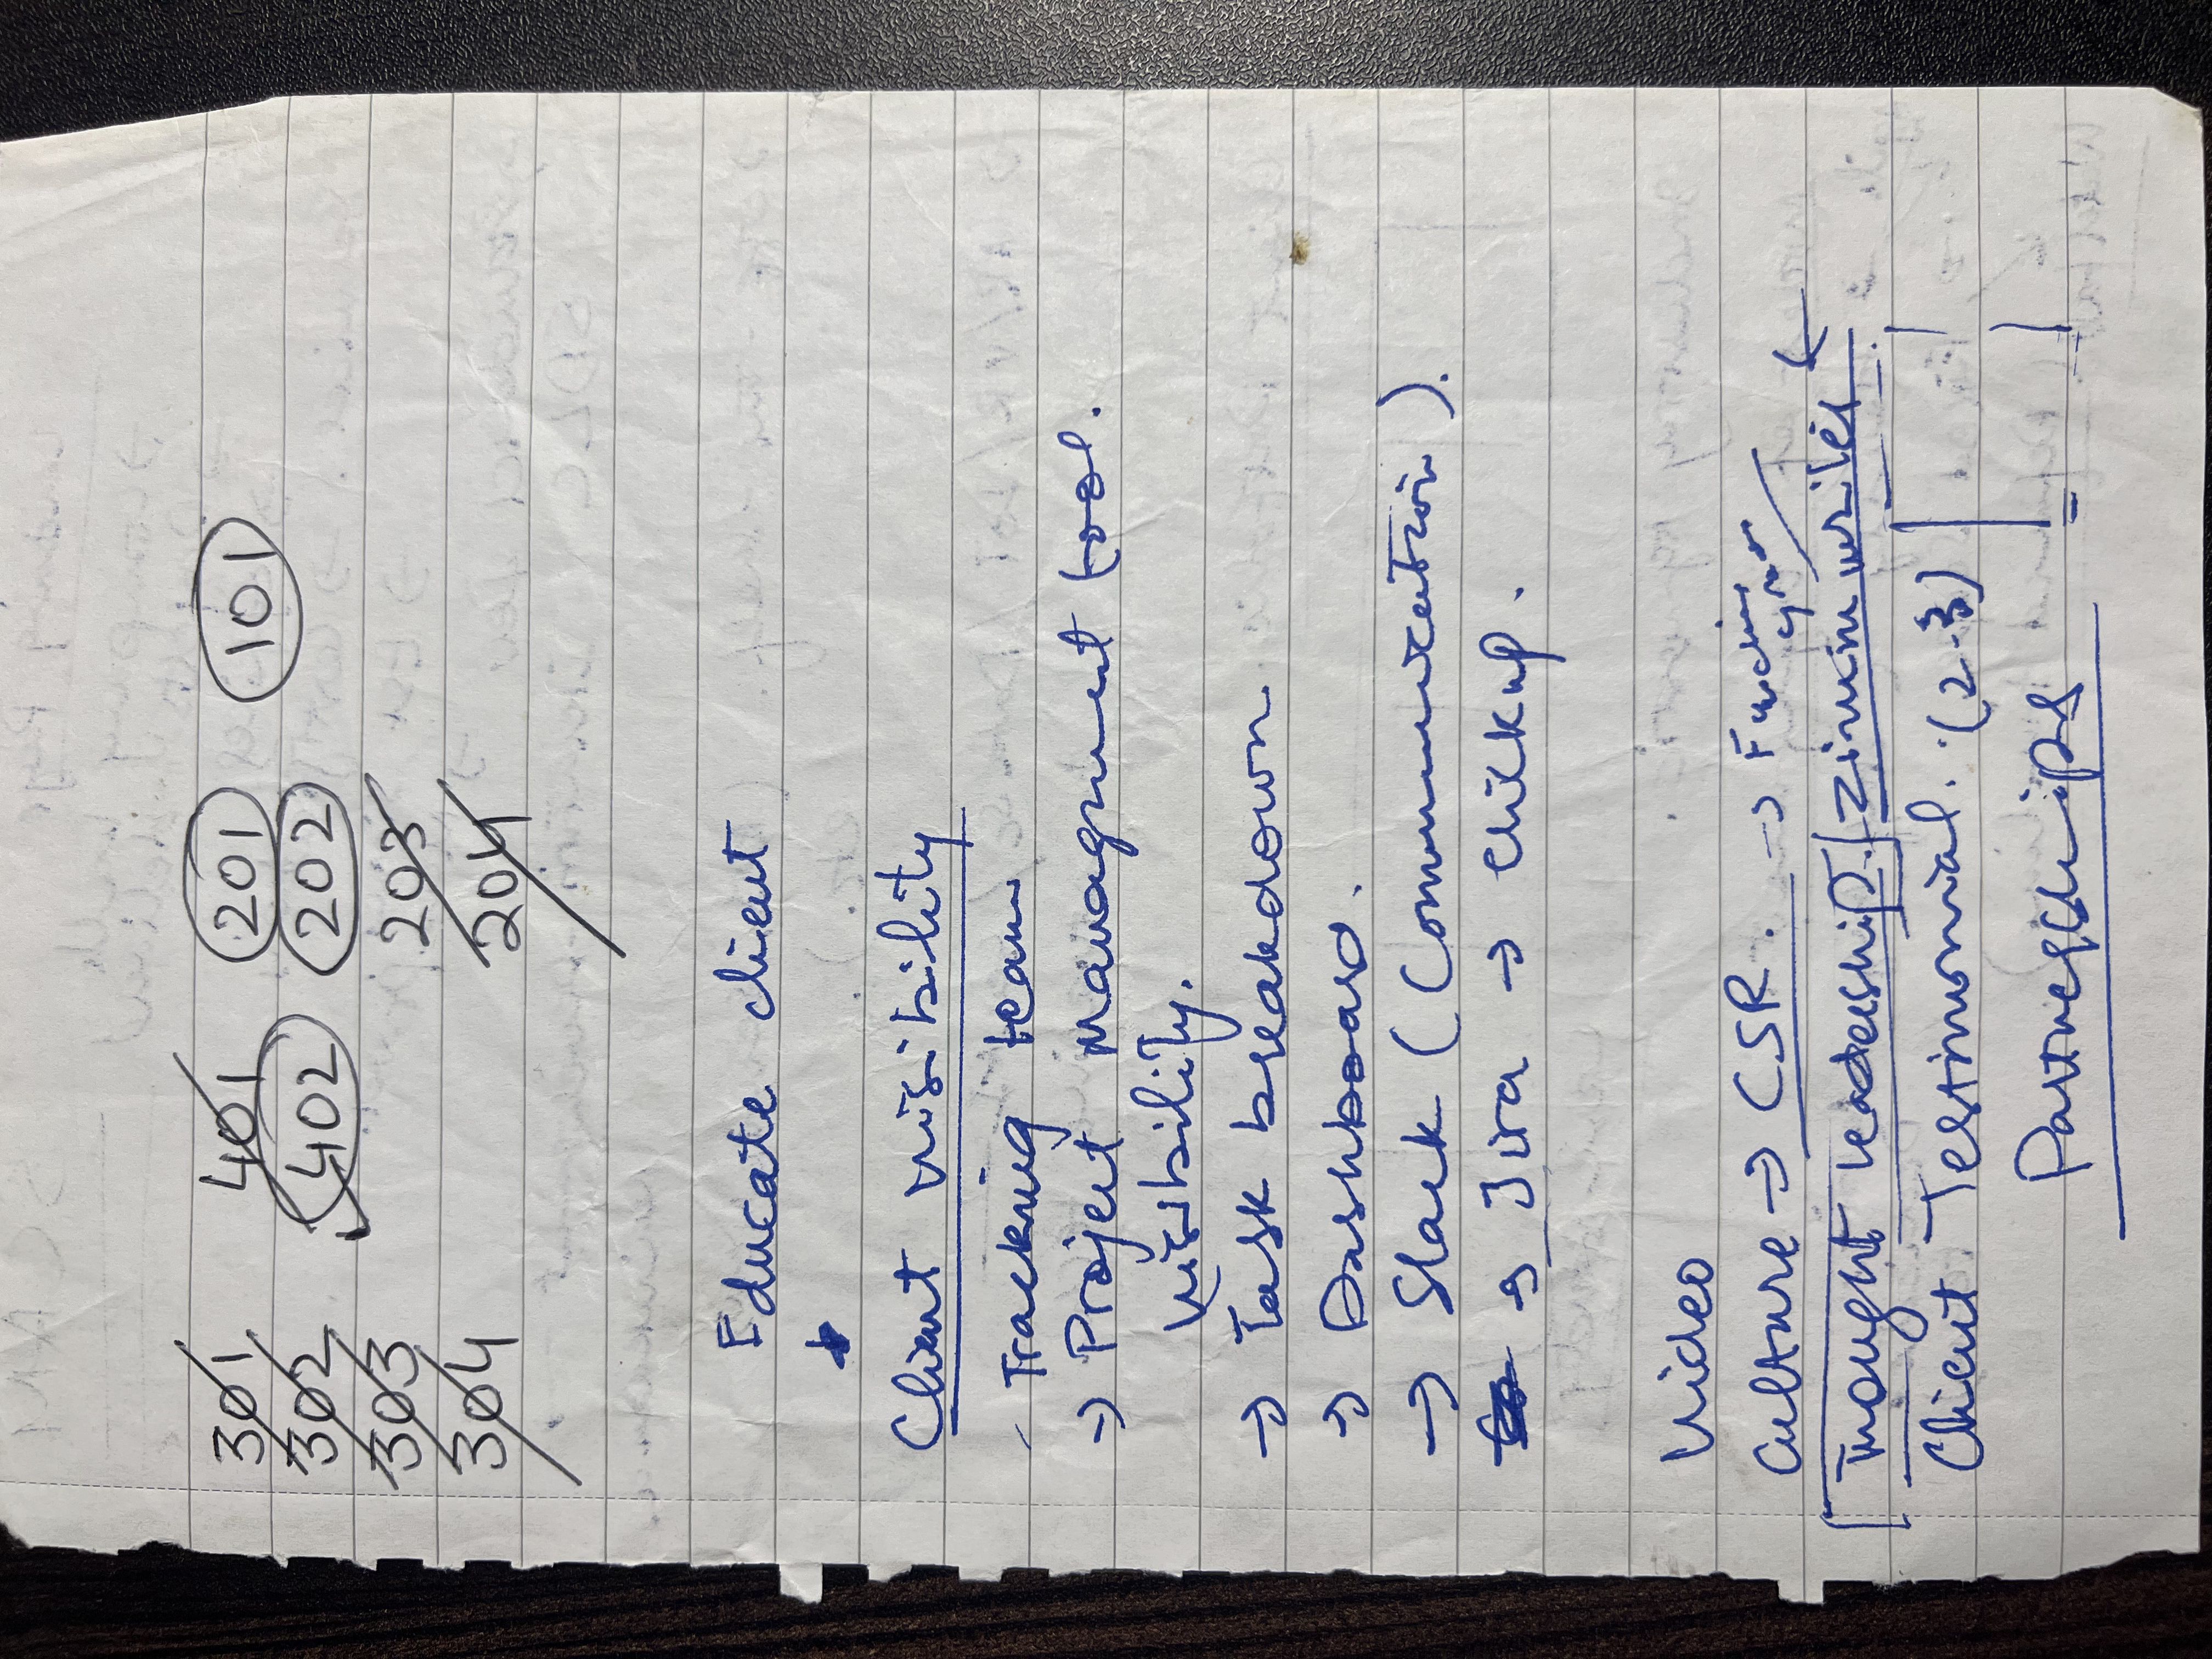 301 401 201 101
302 402 202
303 203
304 204
Educate client
Client visibility
Tracking team
→ Project Management tool.
visibility.
→ Task breakdown.
→ Dashboard.
→ Slack (Communication).
→ Jira → clickup.
Video
Culture → CSR. → Funding
Thought leadership.
Client Testimonial. (2-3)
Partnerships